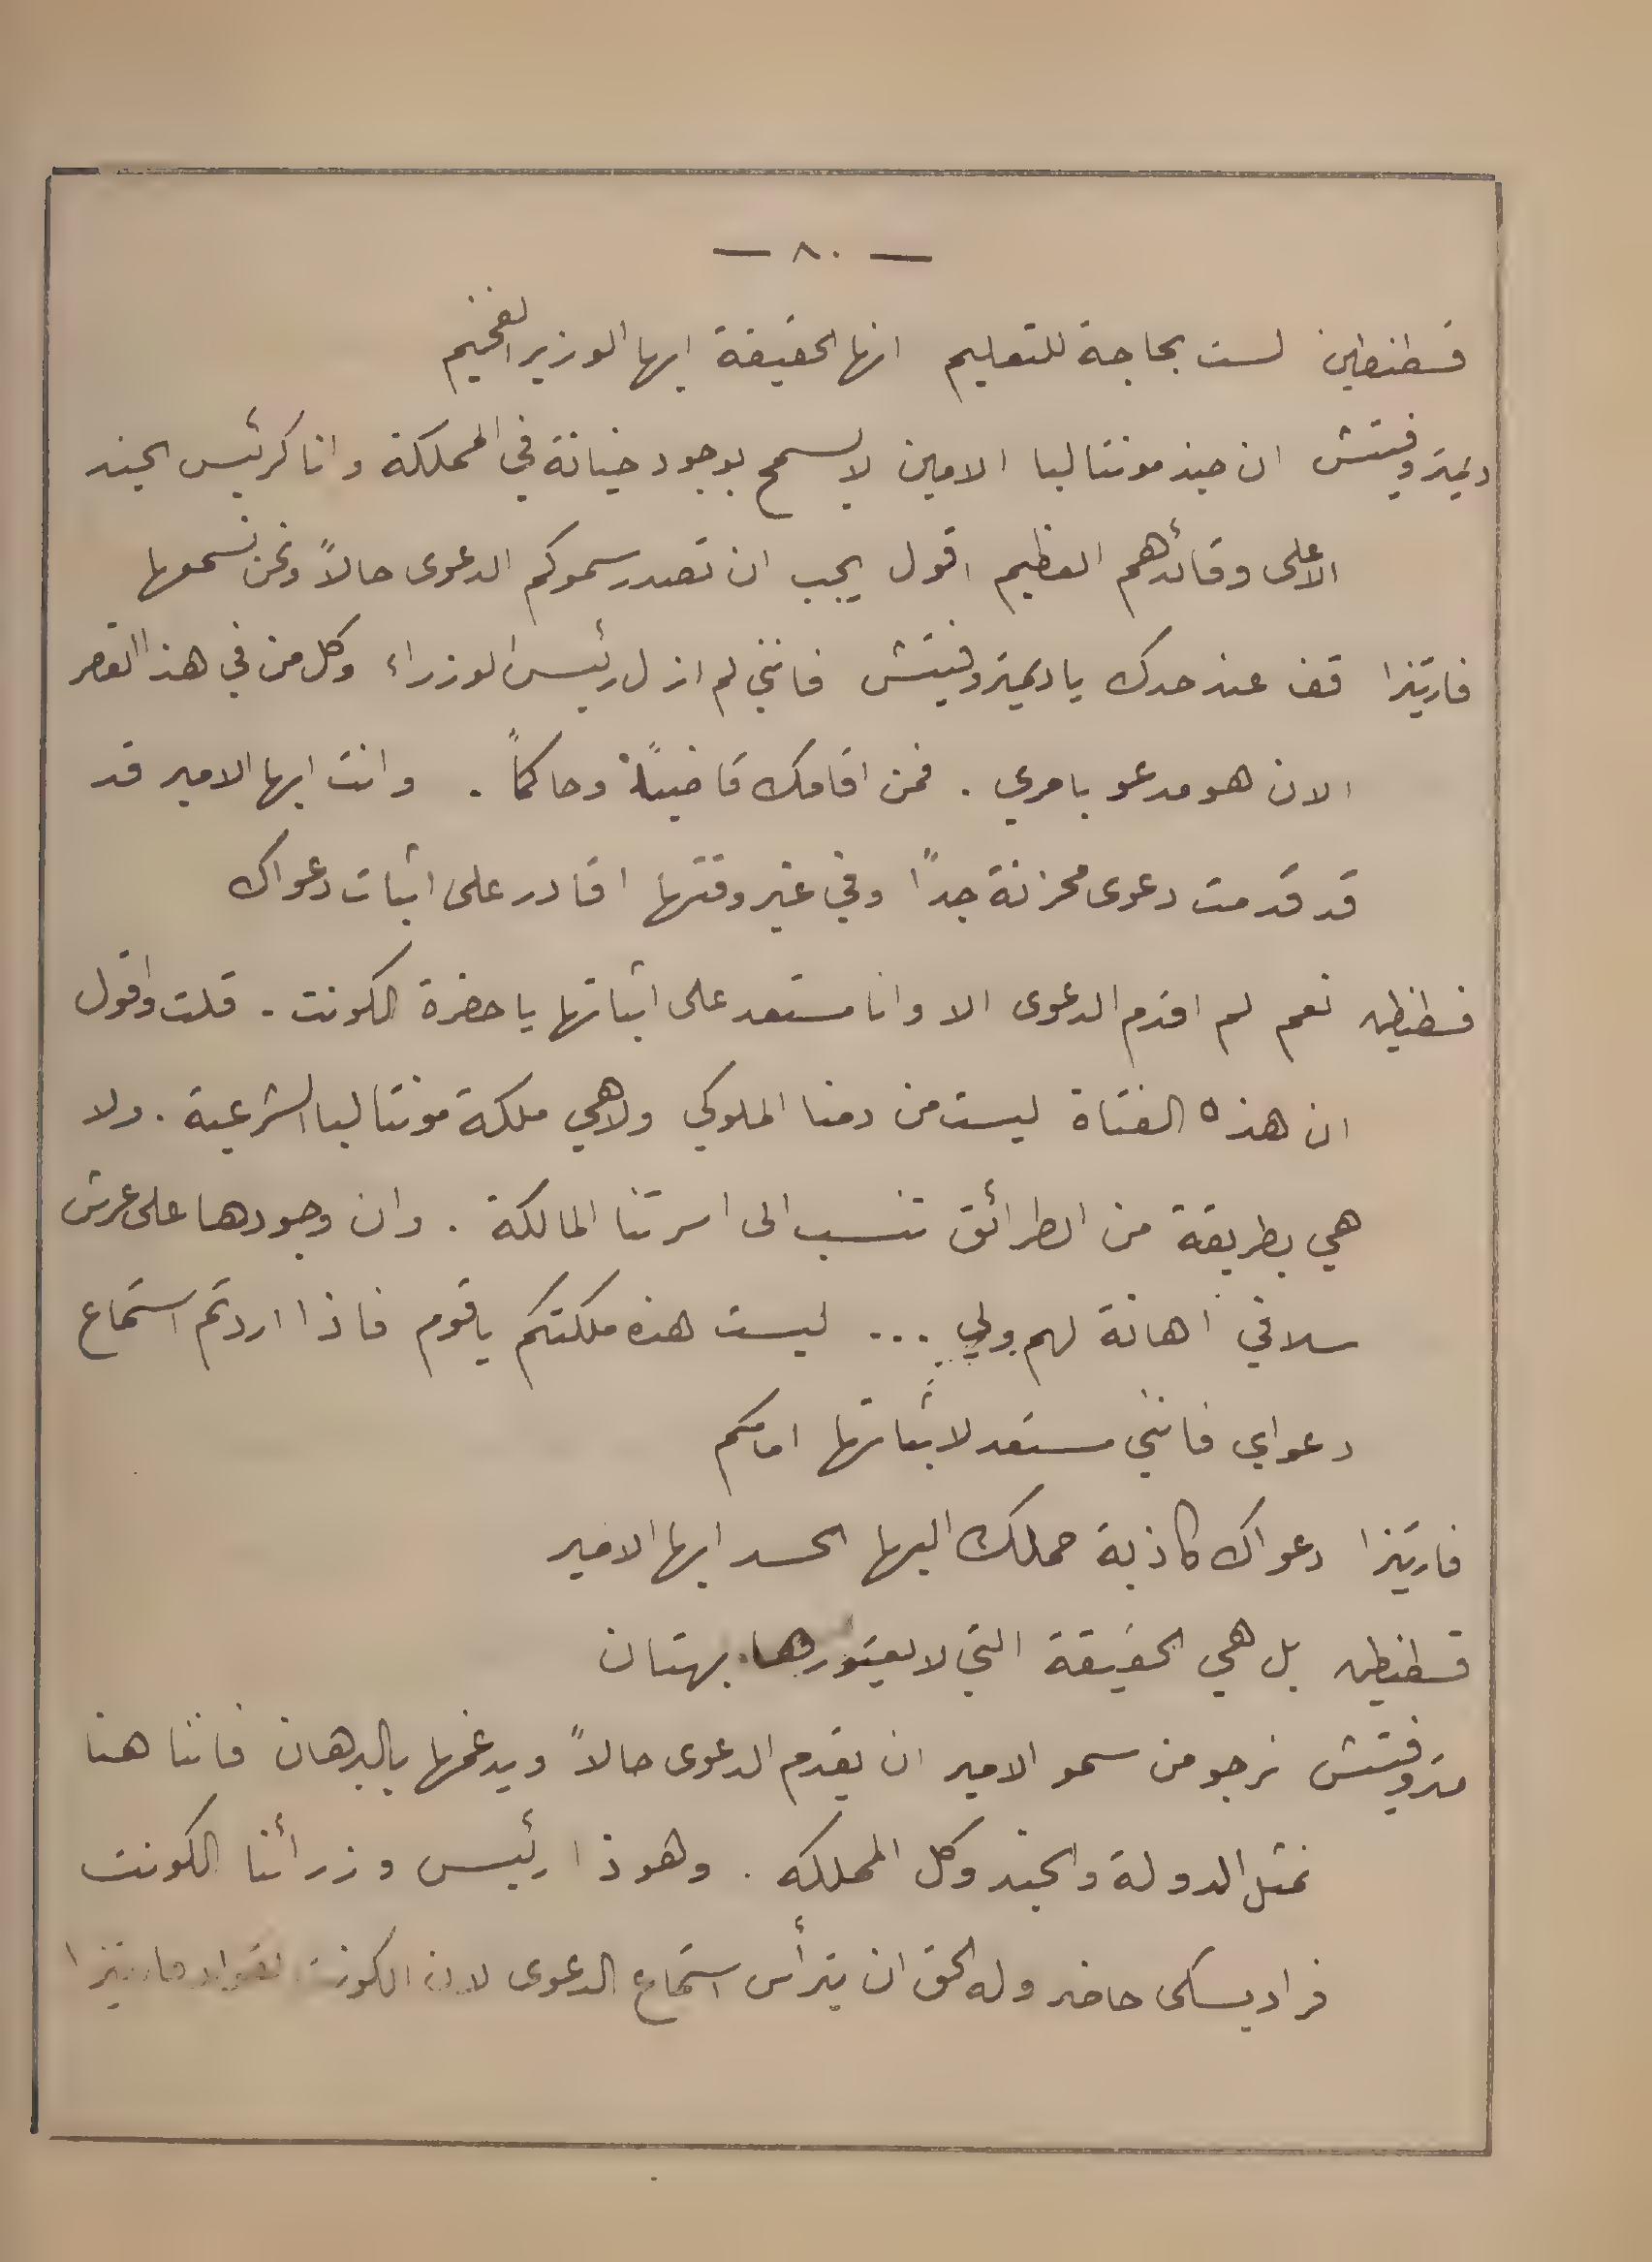 — ٨٠ —
قسطنطين لست بحاجة للتعليم انها الحقيقة ايها الوزير الفخيم
ديميتروفيتش ان جند مونتاليا الامين لا يسمح بوجود خيانة في المملكة وانا كرئيس الجند
الاعلى وقائدهم العظيم اقول يجب ان تصدر سموكم الدعوى حالاً ونحن نسمعها
فارتيزا قف عند حدك يا ديميتروفيتش فانني لم ازل رئيس الوزراء وكل من في هذا القصر
الان هو مدعو بامري . فمن اقامك قاضياً وحاكماً . وانت ايها الامير قد
قد قدمت دعوى محزنة جداً وفي غير وقتها اقادر على اثبات دعواك
قسطنطين نعم لم اقدم الدعوى الا وانا مستعد على اثباتها يا حضرة الكونت . قلت واقول
ان هذه الفتاة ليست من دمنا الملوكي ولا هي ملكة مونتاليا الشرعية . ولا
هي بطريقة من الطرائق تنسب الى اسرتنا المالكة . وان وجودها على عرش
سلافي اهانة لهم ولي ... ليست هذه ملكتكم يا قوم فاذا اردتم استماع
دعواي فانني مستعد لاثباتها امامكم
فارتيزا دعواك كاذبة حملك اليها الحسد ايها الامير
قسطنطين بل هي الحقيقة التي لا يعتورها بهتان
متروفتش نرجو من سمو الامير ان يقدم الدعوى حالاً ويدعمها بالبرهان فاننا هنا
نمثل الدولة والجند وكل المملكه . وهوذا رئيس وزرائنا الكونت
فراديسكى حاضر وله الحق ان يترأس استماع الدعوى لان الكونت فارتيزا